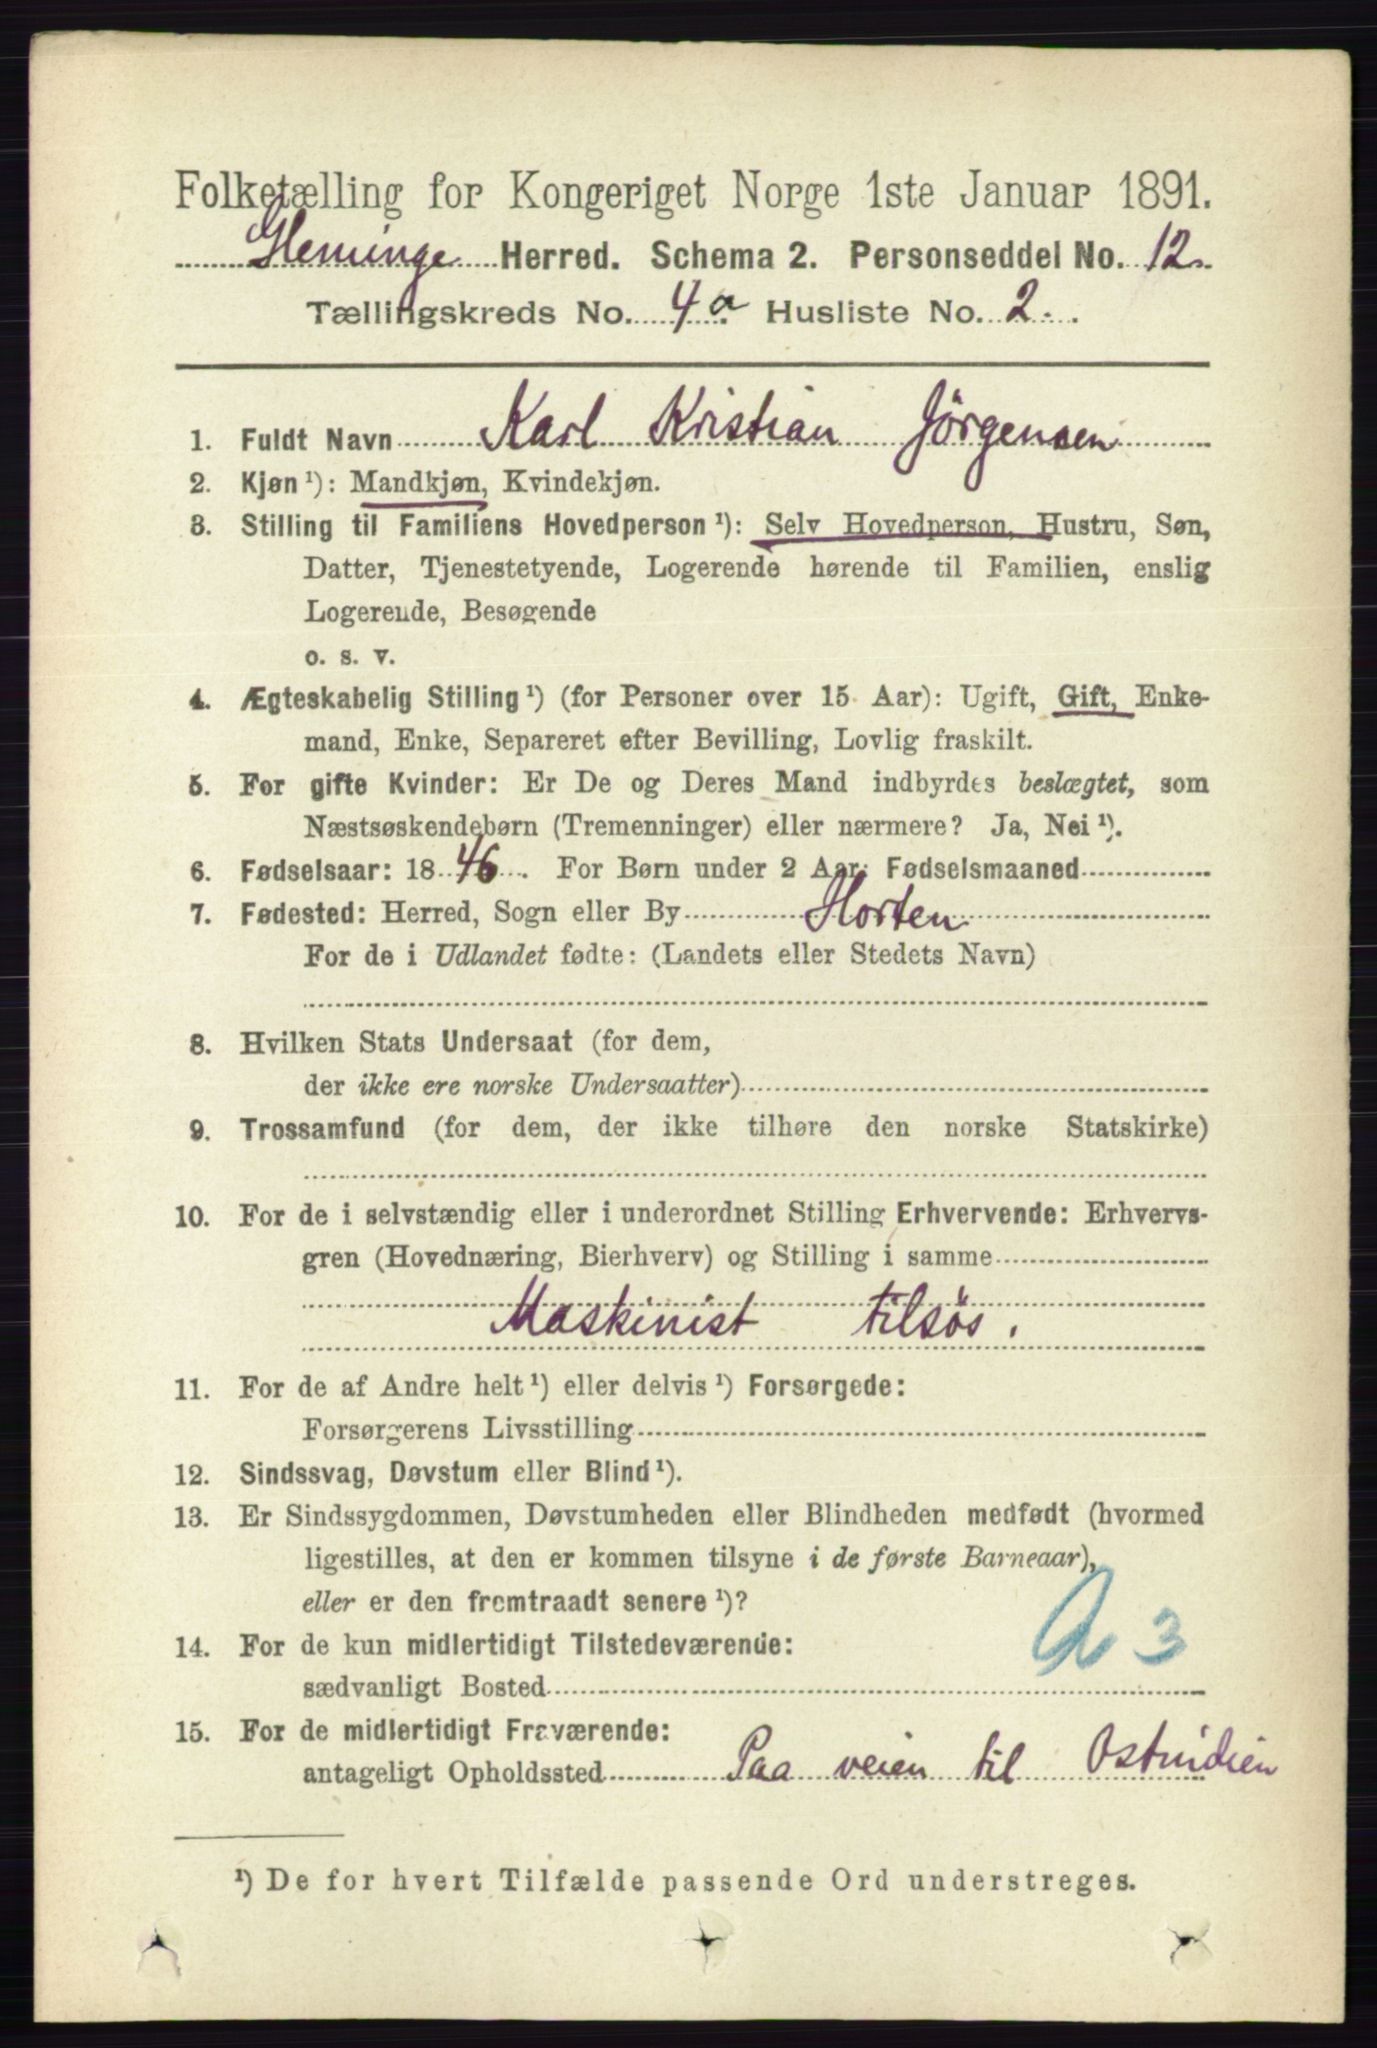 Folketælling for Kongeriget Norge 1ste Januar 1891.
Gleminge Herred. Schema 2. Personseddel No. 12.
Tællingskreds No. 4a Husliste No. 2.
1. Fuldt Navn Karl Kristian Jörgensen
2. Kjøn ¹): Mandkjøn, Kvindekjøn.
3. Stilling til Familiens Hovedperson ¹): Selv Hovedperson, Hustru, Søn,
Datter, Tjenestetyende, Logerende hørende til Familien, enslig
Logerende, Besøgende
o. s. v.
4. Ægteskabelig Stilling ¹) (for Personer over 15 Aar): Ugift, Gift, Enke-
mand, Enke, Separeret efter Bevilling, Lovlig fraskilt.
5. For gifte Kvinder: Er De og Deres Mand indbyrdes beslægtet, som
Næstsøskendebørn (Tremenninger) eller nærmere? Ja, Nei ¹).
6. Fødselsaar: 1846. For Børn under 2 Aar: Fødselsmaaned
7. Fødested: Herred, Sogn eller By Horten
For de i Udlandet fødte: (Landets eller Stedets Navn)
8. Hvilken Stats Undersaat (for dem,
der ikke ere norske Undersaatter)
9. Trossamfund (for dem, der ikke tilhøre den norske Statskirke)
10. For de i selvstændig eller i underordnet Stilling Erhvervende: Erhvervs-
gren (Hovednæring, Bierhverv) og Stilling i samme
Maskinist tilsös.
11. For de af Andre helt ¹) eller delvis ¹) Forsørgede:
Forsørgerens Livsstilling
12. Sindssvag, Døvstum eller Blind ¹).
13. Er Sindssygdommen, Døvstumheden eller Blindheden medfødt (hvormed
ligestilles, at den er kommen tilsyne i de første Barneaar),
eller er den fremtraadt senere ¹)?
14. For de kun midlertidigt Tilstedeværende:
sædvanligt Bosted
3
15. For de midlertidigt Fraværende:
antageligt Opholdssted Paa veien til Ostindien
¹) De for hvert Tilfælde passende Ord understreges.